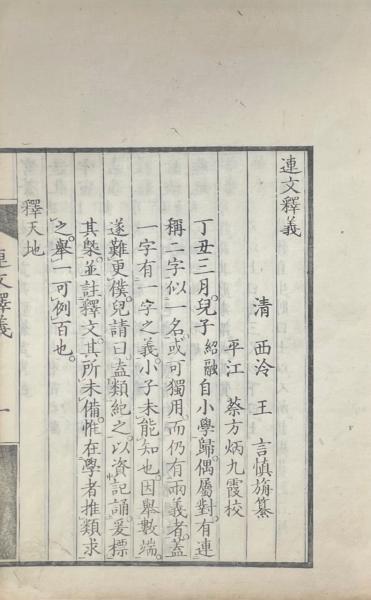 連文釋義
清 西泠 王 言慎旃纂
平江 蔡方炳九霞校
丁丑三月。兒子紹融自小學歸。偶屬對。有連
稱二字似一名。或可獨用。而仍有兩義者。蓋
一字有一字之義。小子未能知也。因舉數端。
遂難更僕。兒請曰。盍類紀之。以資記誦。爰標
其槩。並註釋文。其所未備。惟在學者推類求
之。舉一可例百也。
釋天地
連文釋義
一